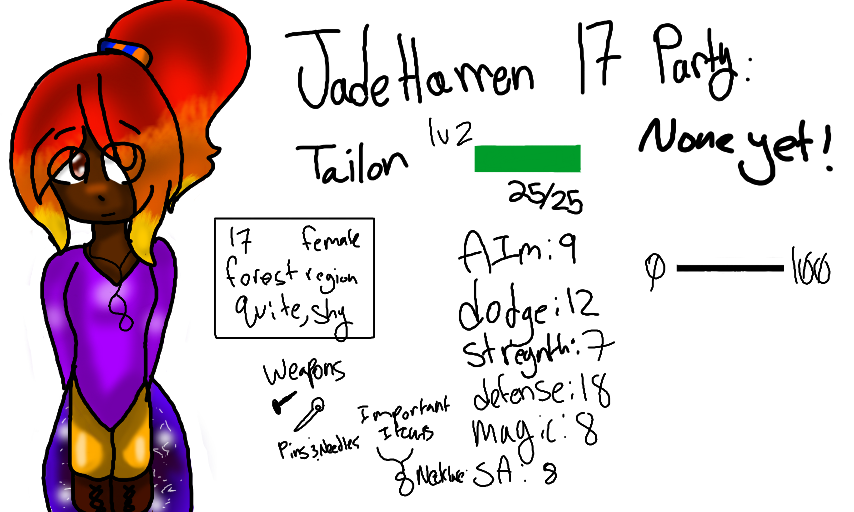 Jade Harren 17
Tailon lv 2
25/25
Party:
None yet!
17 female
forest region
quite, shy
Weapons
Pins & Needles
Important
Items
Aim: 9
dodge: 12
streynth: 7
defense: 18
magic: 8
SA: 8
0 100